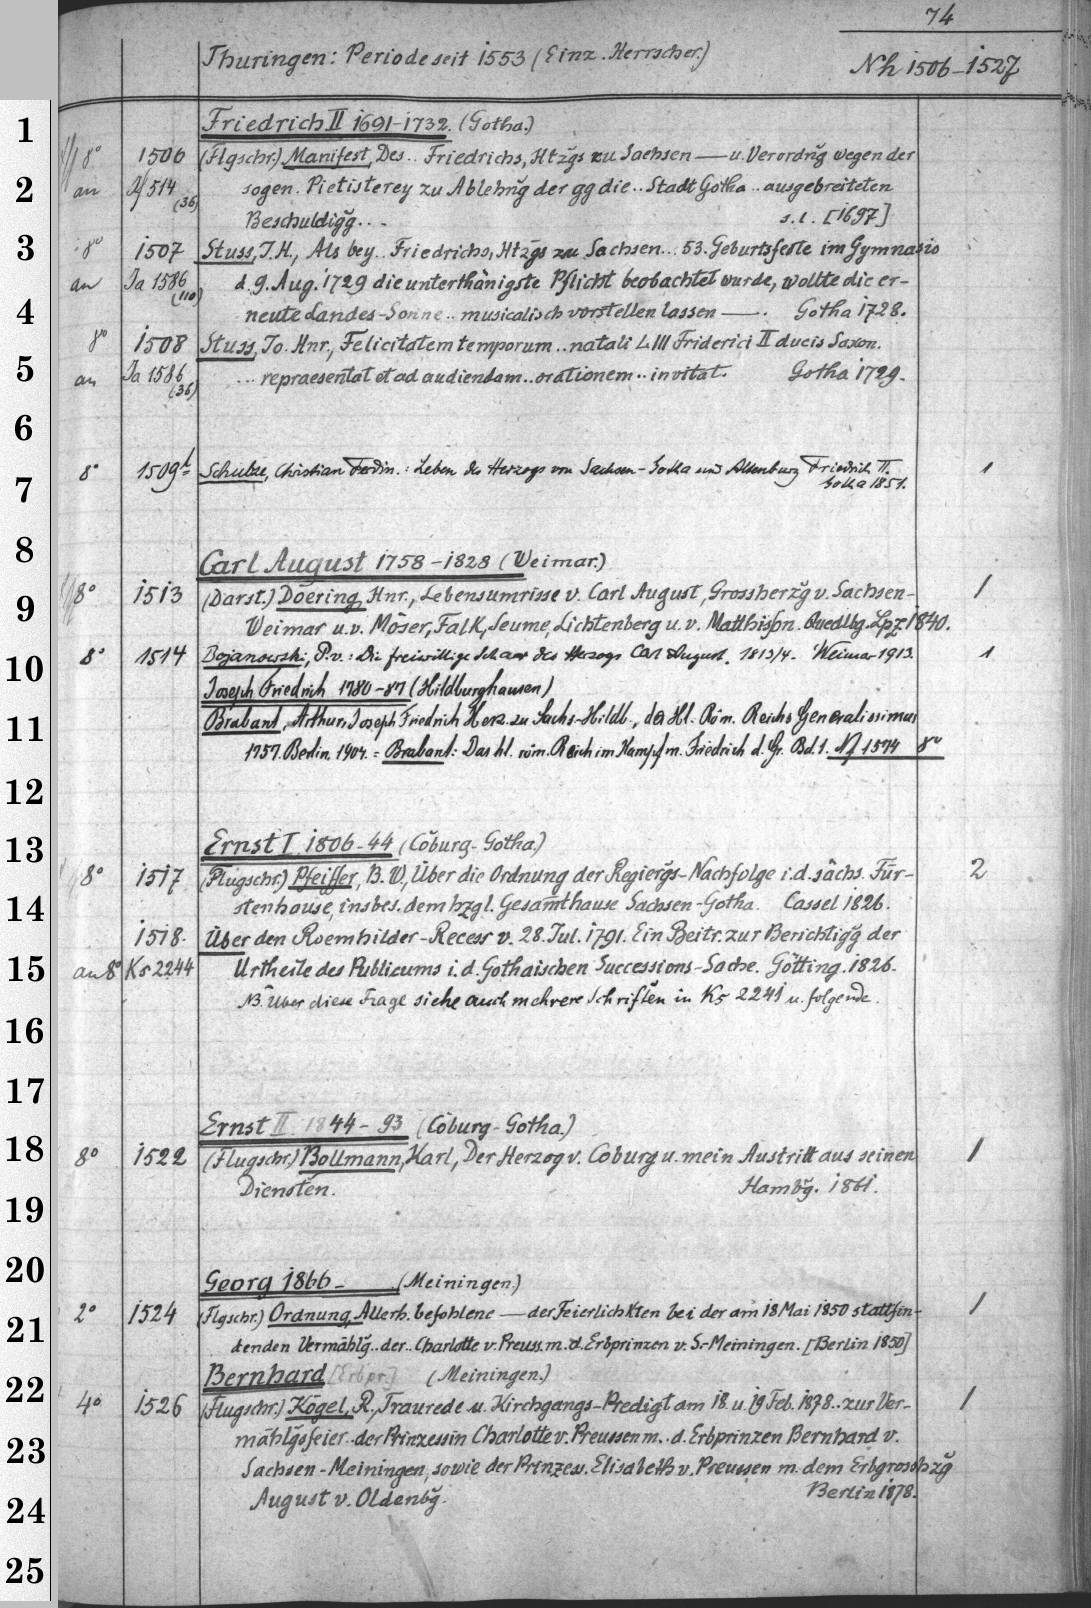 74
Thuringen: Periode seit 1553 (Einz. Herrscher.)
Nh 1506-1527
1
Friedrich II 1691-1732. (Gotha.)
8° 1506 (Flgschr.) Manifest, Des.. Friedrichs, Htzgs zu Sachsen — u. Verordng wegen der
2
an 514 (36) sogen. Pietisterey zu Ablehng der gg die.. Stadt Gotha.. ausgebreiteten
Beschuldigg... s.l. [1697]
3
8° 1507 Stuss, J.H., Als bey.. Friedrichs, Htzgs zu Sachsen... 53. Geburtsfeste im Gymnasio
an Ja 1586 (110) d. 9. Aug. 1729 die unterthänigste Pflicht beobachtet wurde, wollte die er-
4
neute Landes-Sonne.. musicalisch vorstellen lassen —. Gotha 1728.
8° 1508 Stuss, Jo. Hnr., Felicitatem temporum.. natali LIII Friderici II ducis Saxon.
5
an Ja 1586 (36) ... repraesentat et ad audiendam.. orationem.. invitat. Gotha 1729.
6
8° 1509b Schulze, Christian Ferdin.: Leben des Herzogs von Sachsen-Gotha und Altenburg Friedrich II. 1
7
Gotha 1851.
8
Carl August 1758-1828 (Weimar.)
8° 1513 (Darst.) Doering, Hnr., Lebensumrisse v. Carl August, Grossherzg v. Sachsen- 1
9
Weimar u. v. Möser, Falk, Seume, Lichtenberg u. v. Matthisson. Quedlbg. Lpz. 1840.
10
8° 1514 Bojanowski, P. v.: Die freiwillige Schaar des Herzogs Carl August. 1813/4. Weimar 1913. 1
Joseph Friedrich 1780-87 (Hildburghausen)
11
Brabant, Arthur, Joseph Friedrich Herz. zu Sachs-Hildb., der Hl. Röm. Reichs Generalissimus
1757. Berlin, 1904. = Brabant: Das hl. röm. Reich im Kampf m. Friedrich d. Gr. Bd. 1. Nf 1574 8°
12
13
Ernst I. 1806-44 (Coburg-Gotha.)
8° 1517 (Flugschr.) Pfeiffer, B. W., Über die Ordnung der Regiergs-Nachfolge i. d. sächs. Für- 2
14
stenhouse, insbes. dem hzgl. Gesamthause Sachsen-Gotha. Cassel 1826.
1518. Über den Roemhilder-Recess v. 28. Jul. 1791. Ein Beitr. zur Berichtigg der
15
an 8° Ks 2244 Urtheile des Publicums i. d. Gothaischen Successions-Sache. Götting. 1826.
NB. Über diese Frage siehe auch mehrere Schriften in Ks 2241 u. folgende.
16
17
Ernst II 1844-93 (Coburg-Gotha.)
18
8° 1522 (Flugschr.) Bollmann, Karl, Der Herzog v. Coburg u. mein Austritt aus seinen 1
Diensten. Hambg. 1861.
19
20
Georg 1866- (Meiningen.)
2° 1524 (Flgschr.) Ordnung, Allerh. befohlene — der Feierlichkten bei der am 18 Mai 1850 stattfin- 1
21
denden Vermählg.. der.. Charlotte v. Preuss. m. d. Erbprinzen v. S.-Meiningen. [Berlin 1850]
22
Bernhard [Erbpr.] (Meiningen.)
4° 1526 (Flugschr.) Kögel, R., Traurede u. Kirchgangs-Predigt am 18. u. 19 Feb. 1878.. zur Ver- 1
23
mählgsfeier.. der Prinzessin Charlotte v. Preussen m.. d. Erbprinzen Bernhard v.
Sachsen-Meiningen, sowie der Prinzess. Elisabeth v. Preussen m. dem Erbgrosshzg
24
August v. Oldenbg. Berlin 1878.
25